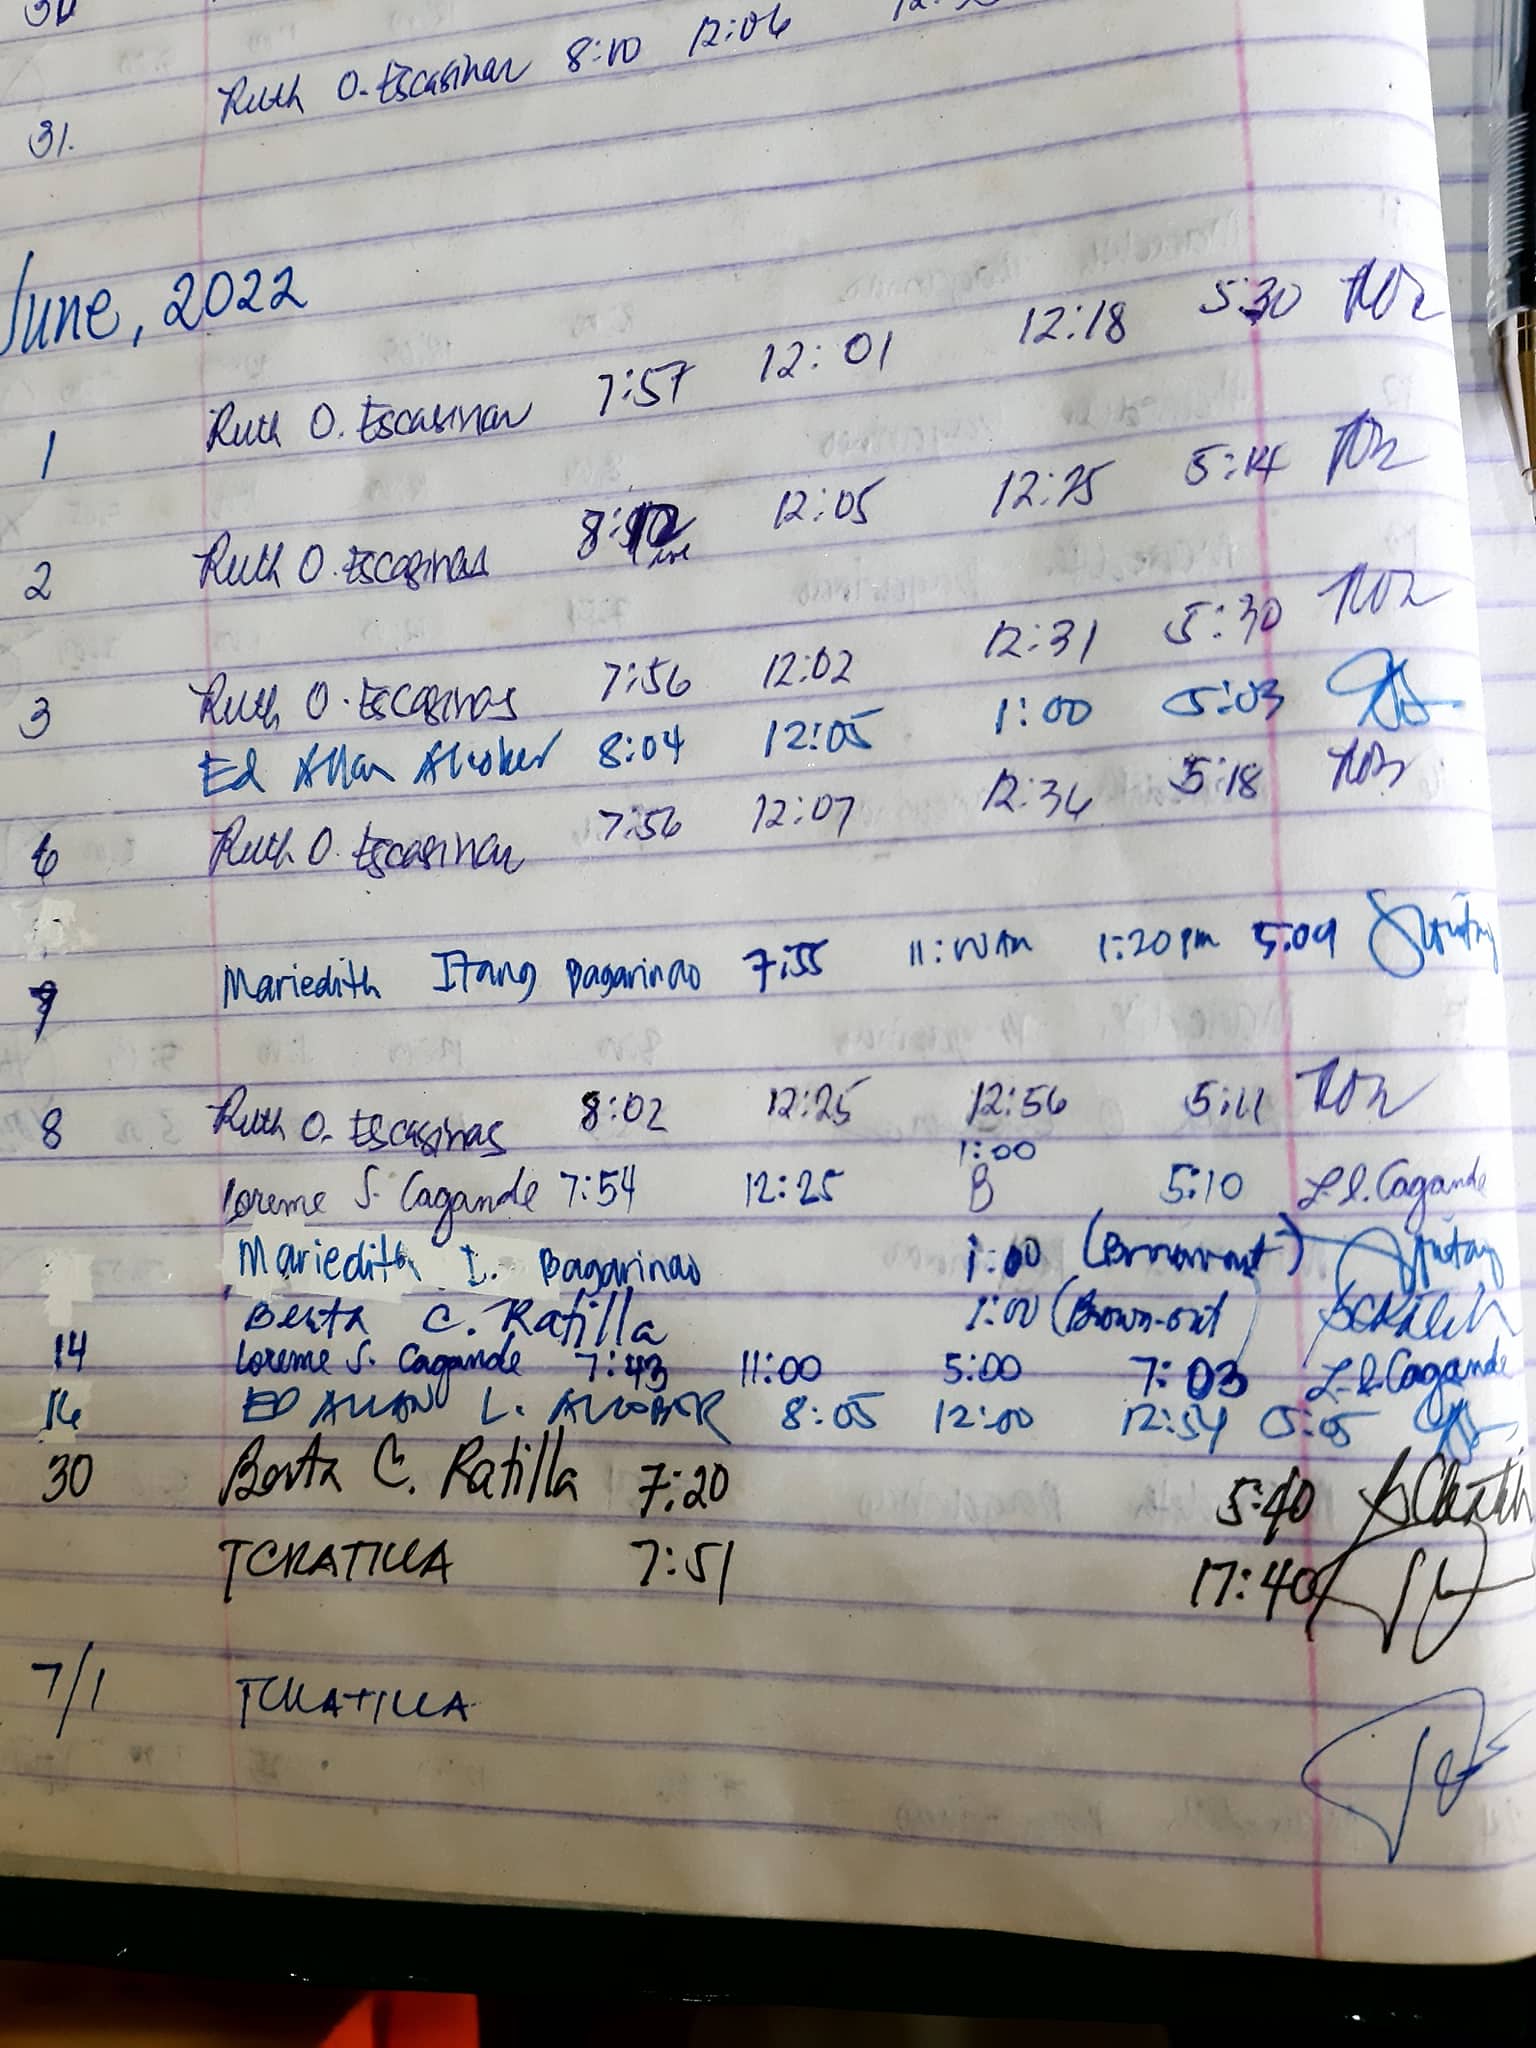 31. Ruth O. Escasinas 8:10 12:06
June, 2022
1 Ruth O. Escasinas 7:57 12:01 12:18 5:30
2 Ruth O. Escasinas 12:05 12:25 5:14
3 Ruth O. Escasinas 7:56 12:02 12:31 5:30
Ed Allan Alcober 8:04 12:05 1:00 5:03
6 Ruth O. Escasinas 7:56 12:07 12:36 5:18
7 Mariedith Itang Bagarinao 7:55 11:00 AM 1:20 PM 5:09
8 Ruth O. Escasinas 8:02 12:25 12:56 5:11
1:00
Loreme S. Cagande 7:54 12:25 5:10 L.S. Cagande
Mariedith I. Bagarinao 1:00 (Brownout)
Berta C. Ratilla 1:00 (Brown-out)
14 Loreme S. Cagande 7:43 11:00 5:00 7:03 L.S. Cagande
16 ED ALLAN L. ALCOBER 8:05 12:00 12:54 5:05
30 Berta C. Ratilla 7:20 5:40
TCRATILLA 7:51 17:40
7/1 TCRATILLA